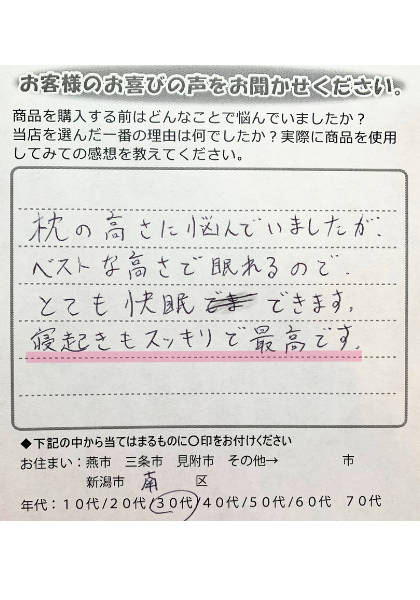 お客様のお喜びの声をお聞かせください。
商品を購入する前はどんなことで悩んでいましたか？
当店を選んだ一番の理由は何でしたか？実際に商品を使用
してみての感想を教えてください。
枕の高さに悩んでいましたが、
ベストな高さで眠れるので、
とても快眠できます。
寝起きもスッキリで最高です。
◆下記の中から当てはまるものに〇印をお付けください
お住まい：燕市 三条市 見附市 その他→ 市
新潟市 南 区
年代：１０代/２０代/３０代/４０代/５０代/６０代 ７０代